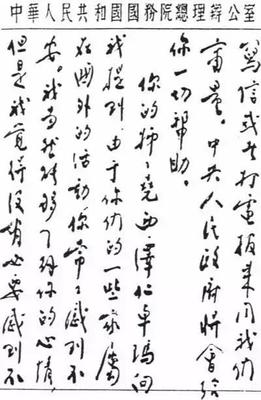 中華人民共和國國務院總理辦公室
寫信或者打電报来同我们
商量。中央人民政府将會给
你一切帮助。
你的姊々堯西澤仁卓瑪向
我提到，由于你们的一些家屬
在國外的活動，你常々感到不
安。我当然能够了解你的心情，
但是我覚得没有必要感到不